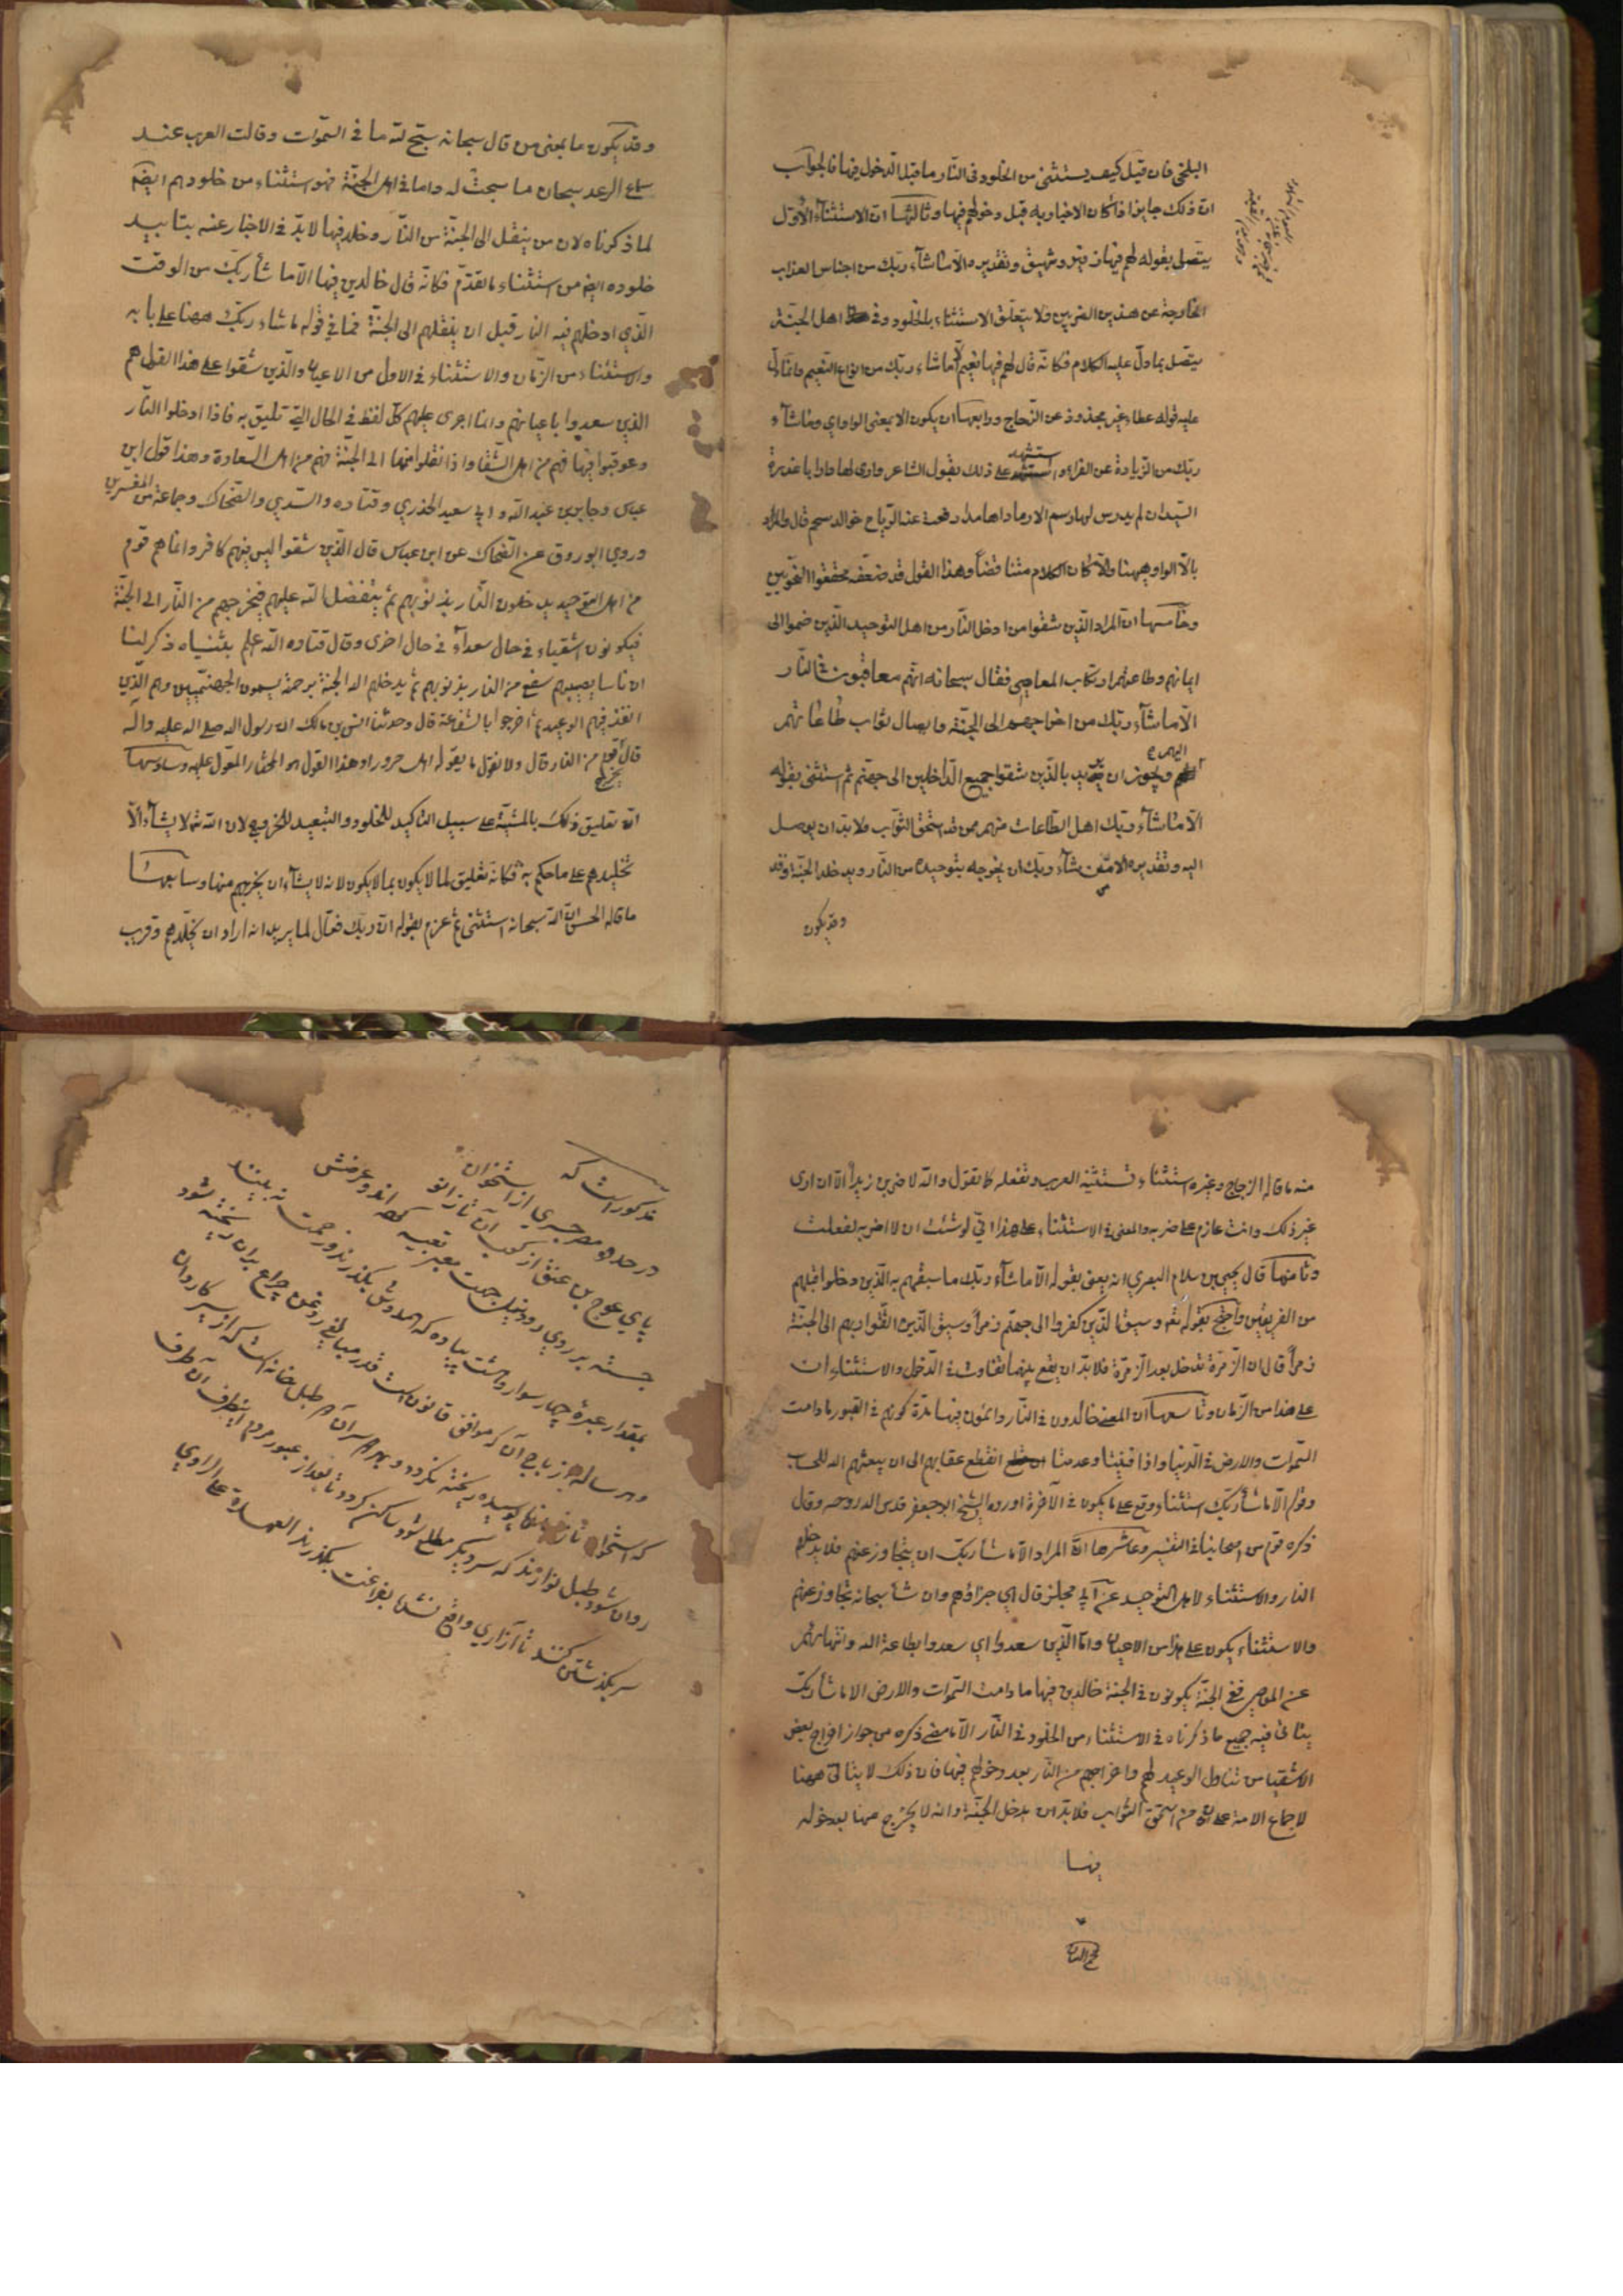 البلخي فان قيل كيف يستثنى من الخلود في النار ما قبل الدخول فيها فالجواب
ان ذلك جايز اذا كان الاخبار به قبل دخولهم فيها وثالثها ان الاستثناء الاول
يتصل بقوله لهم فيها زفير وشهيق وتقديره الا ما شاء ربك من اجناس العذاب
الخارجة عن هذين الضربين ولا يتعلق الاستثناء بالخلود وفي اهل الجنة
يتصل بما دل عليه الكلام فكانه قال لهم فيها نعيم الا ما شاء ربك من انواع النعيم وانما دل
عليه قوله عطاء غير مجذوذ عن الزجاج ورابعها ان يكون الا بمعنى الواو اي وما شاء
ربك من الزيادة عن الفراء واستشهد على ذلك بقول الشاعر وارى لها دارا باغدرة
السيدان لم يدرس لها رسم الا رمادا هامدا دفعت عنه الرياح خوالد سحم قال والمراد
بالا الواو ههنا والا كان الكلام متناقضا وهذا القول قد ضعفه محققوا النحويين
وخامسها ان المراد الذين شقوا من ادخل النار من اهل التوحيد الذين ضموا الى
ايمانهم وطاعتهم ارتكاب المعاصي فقال سبحانه انهم معاقبون في النار
الا ما شاء ربك من اخراجهم الى الجنة وايصال ثواب طاعاتهم
اليهم ويجوز ان يريد بالذين شقوا جميع الداخلين الى جهنم ثم استثنى بقوله
الا ما شاء ربك اهل الطاعات منهم ممن قد استحق الثواب ولا بد ان يوصل
اليه وتقديره الا من شاء ربك ان يخرجه بتوحيده من النار ويدخله الجنة وقد
وقد يكون
وقد يكون ما بمعنى من قال سبحانه سبح لله ما في السموات وقالت العرب عند
سماع الرعد سبحان ما سبحت له واما في اهل الجنة فهو استثناء من خلودهم ايضا
لما ذكرناه لان من ينقل الى الجنة من النار وخلد فيها لا بد في الاخبار عنه بتابيد
خلوده ايضا من استثناء ما تقدم فكانه قال خالدين فيها الا ما شاء ربك من الوقت
الذي ادخلهم فيه النار قبل ان ينقلهم الى الجنة فما في قوله ما شاء ربك ههنا على بابه
والاستثناء من الزمان والاستثناء في الاول من الاعيان والذين شقوا على هذا القول هم
الذين سعدوا باعيانهم وانما اجرى عليهم كل لفظ في الحال التي تليق به فاذا ادخلوا النار
وعوقبوا فيها فهم من اهل الشقا واذا نقلوا منها الى الجنة فهم من اهل السعادة وهذا قول ابن
عباس وجابر بن عبد الله وابي سعيد الخدري وقتاده والسدي والضحاك وجماعة من المفسرين
وروى ابو روق عن الضحاك عن ابن عباس قال الذين شقوا ليس فيهم كافر وانما هم قوم
من اهل التوحيد يدخلون النار بذنوبهم ثم يتفضل الله عليهم فيخرجهم من النار الى الجنة
فيكونون اشقياء في حال سعداء في حال اخرى وقال قتاده الله اعلم بثنياه ذكر لنا
ان ناسا يصيبهم سفع من النار بذنوبهم ثم يدخلهم الله الجنة برحمته يسمون الجهنميين وهم الذين
انفذ فيهم الوعيد ثم اخرجوا بالشفاعة قال وحدثنا انس بن مالك ان رسول الله صلى الله عليه واله
قال يخرج قوم من النار قال ولا نقول ما يقوله اهل حرورا وهذا القول هو المختار المعول عليه وسادسها
ان تعليق ذلك بالمشية على سبيل التاكيد للخلود والتبعيد للخروج لان الله تع لا يشاء الا
تخليدهم على ما حكم به فكانه تعليق لما لا يكون بما لا يكون لانه لا يشاء ان يخرجهم منها وسابعها
ما قاله الحسن ان الله سبحانه استثنى ثم عزم بقوله ان ربك فعال لما يريد انه اراد ان يخلدهم وقريب
منه ما قاله الزجاج وغيره استثناء تستثنيه العرب وتفعله كما تقول والله لاضربن زيدا الا ان ارى
غير ذلك وانت عازم على ضربه والمعنى في الاستثناء على هذا اني لو شئت ان لا اضربه لفعلت
وثامنها قال يحيى بن سلام البصري انه يعني بقوله الا ما شاء ربك ما سبقهم به الذين دخلوا قبلهم
من الفريقين واحتج بقوله تعه وسيق الذين كفروا الى جهنم زمرا وسيق الذين اتقوا ربهم الى الجنة
زمرا قال ان الزمرة تدخل بعد الزمرة فلا بد ان يقع بينهما تفاوت في الدخول والاستثناءان
على هذا من الزمان وتاسعها ان المعنى خالدون في النار دائمون فيها مدة كونهم في القبور ما دامت
السموات والارض في الدنيا واذا فنيتا وعدمتا انقطع عقابهم الى ان يبعثهم الله للحساب
وقوله الا ما شاء ربك استثناء وقع على ما يكون في الآخرة اورده الشيخ ابو جعفر قدس الله روحه وقال
ذكره قوم من اصحابنا في التفسير وعاشرها ان المراد الا ما شاء ربك ان يتجاوز عنهم فلا يدخلهم
النار والاستثناء لاهل التوحيد عن ابي مجلز قال اي جزاؤهم وان شاء سبحانه تجاوز عنهم
والاستثناء يكون على هذا من الاعيان واما الذين سعدوا اي سعدوا بطاعة الله وانتهائهم
عن المعاصي ففي الجنة يكونون في الجنة خالدين فيها ما دامت السموات والارض الا ما شاء ربك
يتاتى فيه جميع ما ذكرناه في الاستثناء من الخلود في النار الا ما مضى ذكره من جواز اخراج بعض
الاشقيا من تناول الوعيد لهم واخراجهم من النار بعد دخولهم فيها فان ذلك لا يتاتى ههنا
لاجماع الامة على ان من استحق الثواب فلا بد ان يدخل الجنة وانه لا يخرج منها بعد دخوله
فيها
مذكور است كه
در حدود مصر جسري از استخوان
پاي عوج بن عنق از كعب آن تا زانو